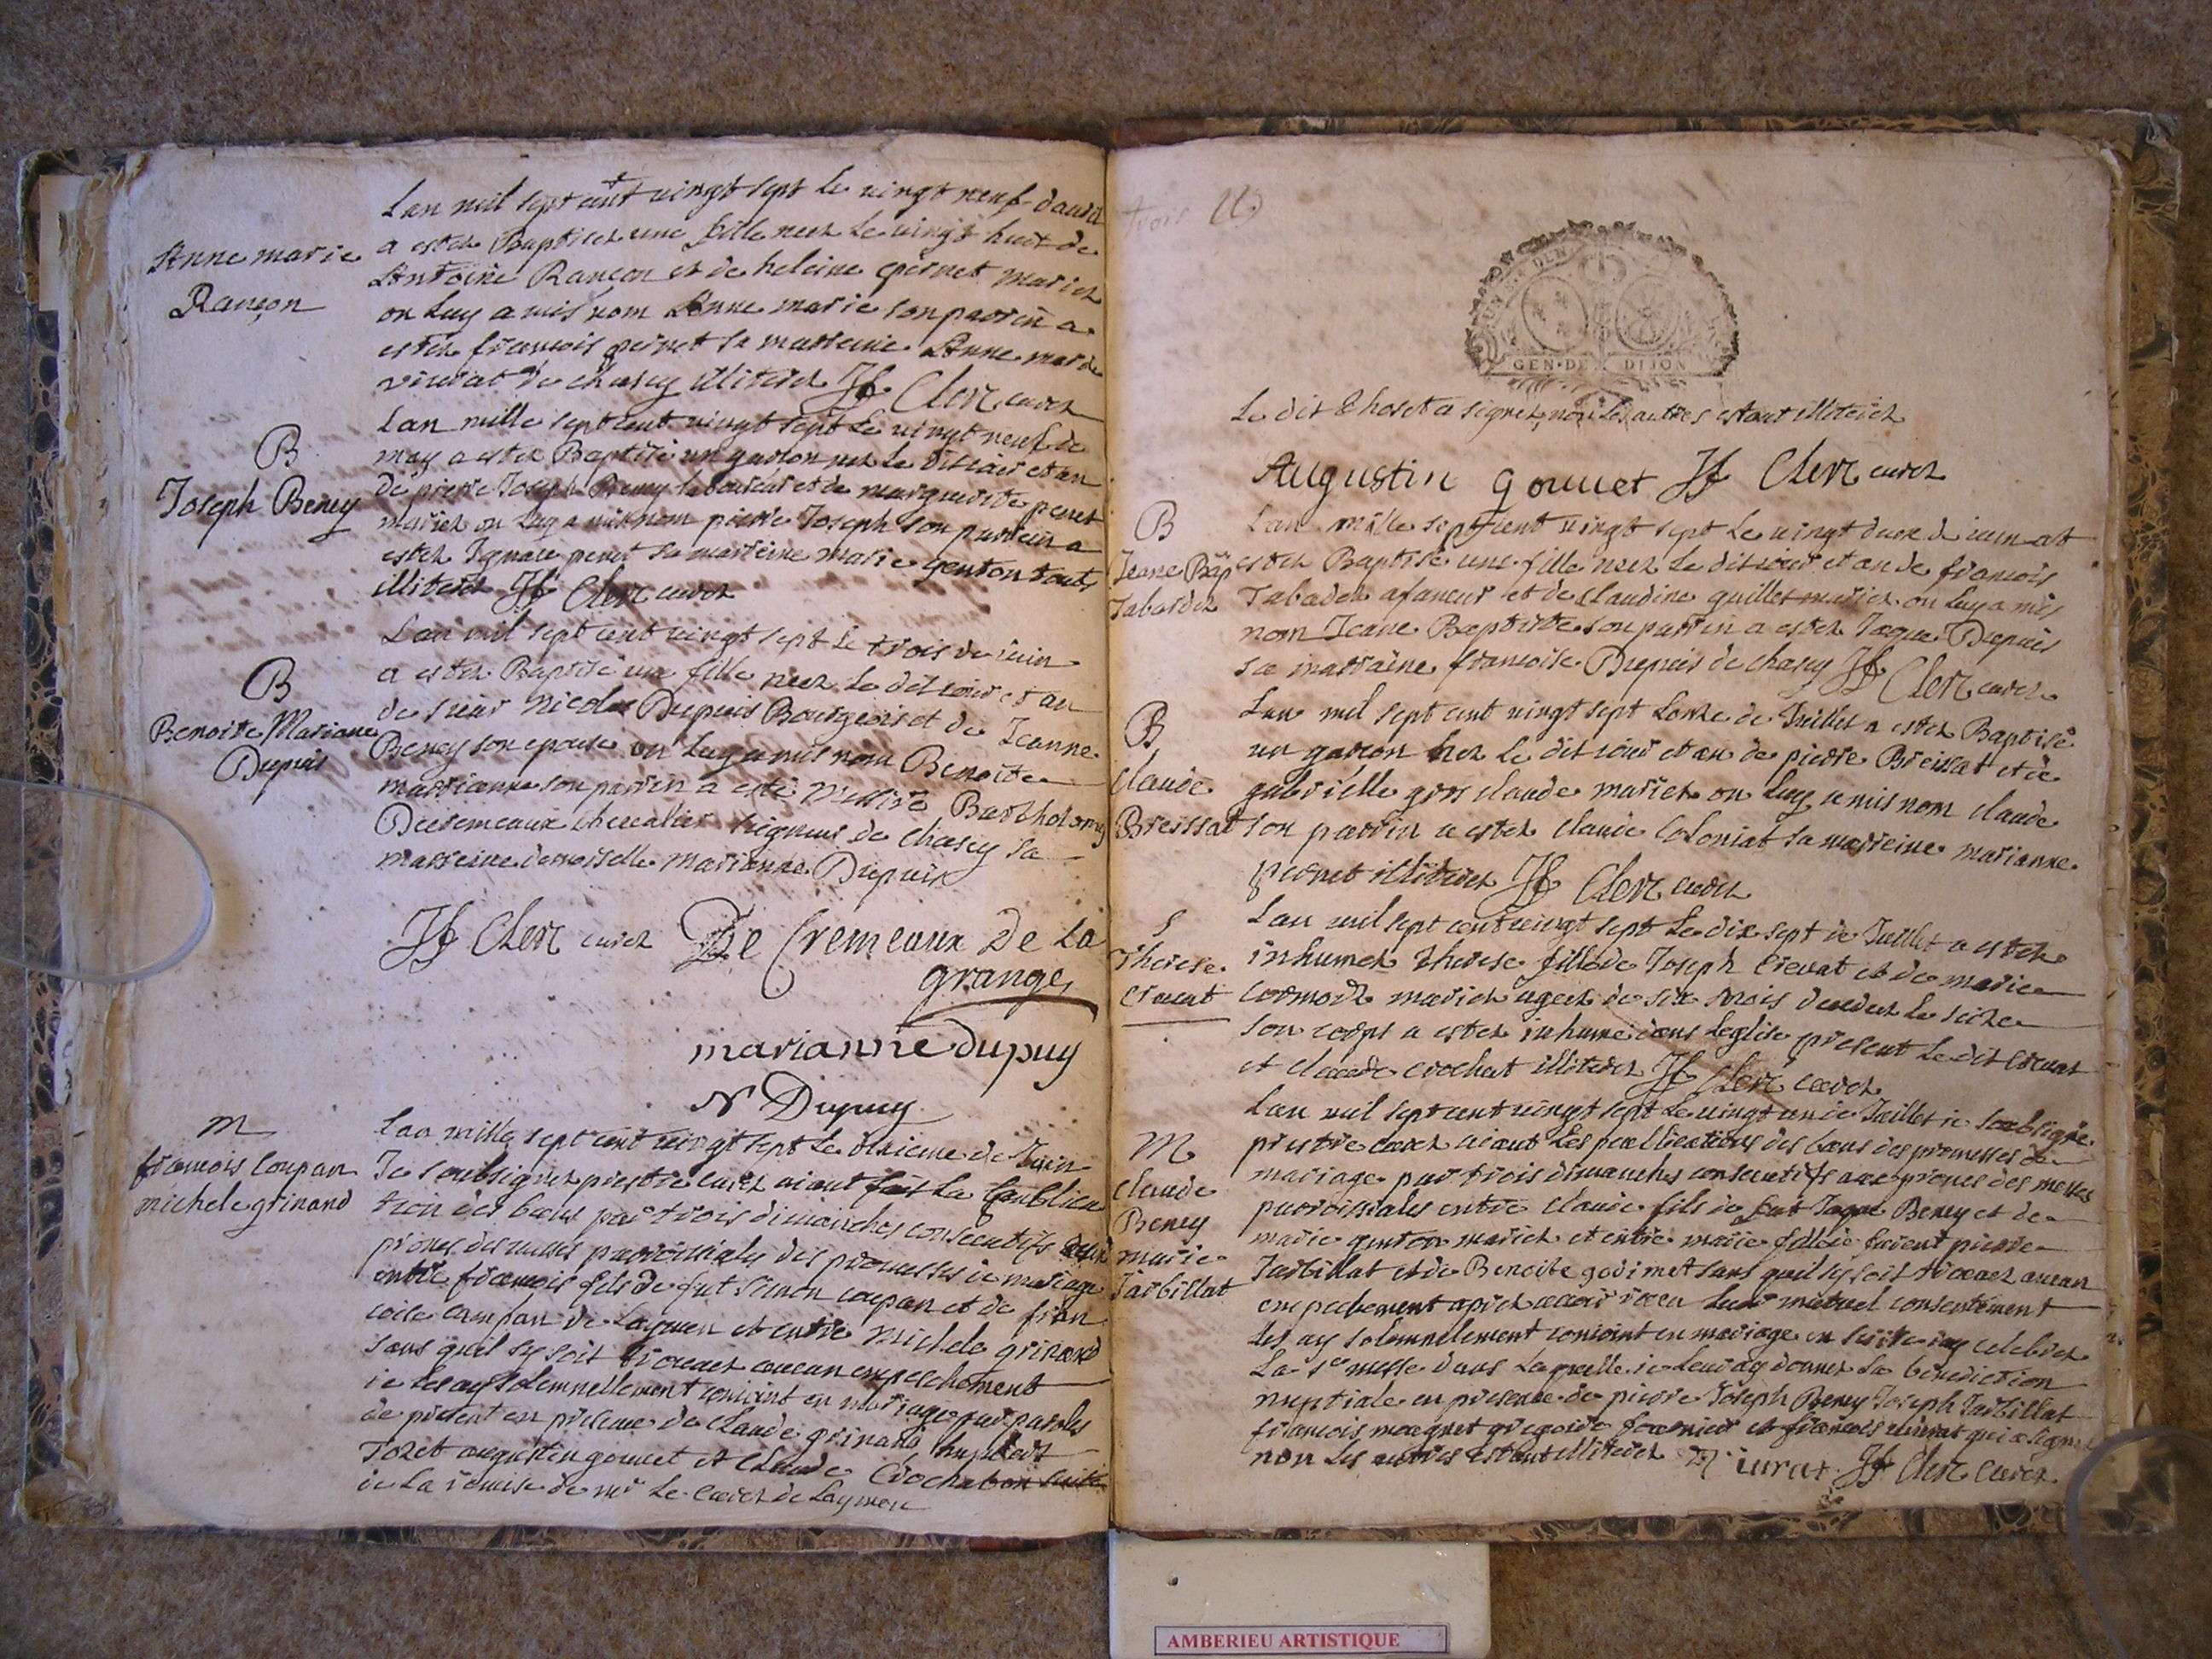 Lan mil sept cent vingt sept le vingt neuf davril
Anne marie
Rançon
a ester Baptisez une fille neez le vingt huit de
Antoine Rançon et de heleine pernet mariez
on luy a mis nom Anne marie son parrin a
ester francois pernet sa marreine Anne marie
vivivat de chasey illiterez JF Clerc curez
B
Joseph Beney
Lan mille sept cent vingt sept le vingt neuf de
may a ester Baptisé un garson nez le dit iour et an
de pierre Joseph Beney laboureur et de marguerite penet
mariez on luy a mis nom pierre Joseph son parrein a
ester Ignace penet sa marreine marie genton touts
illiterez JF Clerc curez
B
Benoite Mariane
Dupuis
Lan mil sept cent vingt sept le trois de iuin
a ester Baptisé une fille neez le dit iour et an
de sieur Nicolas Dupuis Bourgeois et de Jeanne
Beney son epouse on luy a mis nom Benoite
marrianne son parrin a esté Messire Barthelomy
Decremeaux chevalier seigneur de Chasey sa
marreine demoiselle marianne Dupuis
JF Clerc curez De Cremeaux De la
grange
marianne dupuy
N Dupuy
m
francois Coupan
michele grinand
Lan mille sept cent vingt sept le dixieme de Juin
Je soubsignez prestre curez aiant fait la publica
tion des bans par trois dimanches consecutifs
prones des messes parroissiales des promesses de mariage
entre francois fils de fut Simon coupan et de fran
coise campan de Laymen et entre michele grinand
sans quil sy soit trouvez aucun empeschement
ie les ay solemnellement conioint en mariage par paroles
de present en presence de Claude grinand humbert
Tozet augustin gouuet et Claude Crochat
de la remise de mr le Curez de Laymen
GEN·DE DIJON
Le dit a signez non les autres estant illiterez
Augustin gouuet JF Clerc curez
B
Jeane Bap
Tabardez
Lan mille sept cent vingt sept le vingt deux de iuin at
ester Baptisé une fille neez le dit iour et an de francois
Tabadez afaneur et de Claudine quillet mariez on luy a mis
nom Jeane Baptiste son parrin a ester Jaque Dupuis
sa marraine francoise Dupuis de chasey JF Clerc curez
B
Claude
Breissat
Lan mil sept cent vingt sept lonze de Juillet a ester Baptisé
un garson nez le dit iour et an de pierre Breissat et de
gabrielle gros claude mariez on luy a mis nom claude
son parrin a ester claude Coloniat sa marreine marianne
pernet illiterez JF Clerc curez
S
Therese
Crevat
Lan mil sept cent vingt sept le dix sept de Juillet a ester
inhumez therese fille de Joseph Crevat et de marie
cormorz mariez ageez de six mois decedez le seize
son corps a ester inhumé dans leglise present le dit Crevat
et claude crochat illiterez JF Clerc curez
M
Claude
Beney
marie
Tarbillat
Lan mil sept cent vingt sept le vingt un de Juillet ie soubsigné
prestre curez aiant les publications des bans des promesses de
mariage par trois dimanches consecutifs aux prones des messes
parroissiales entre claude fils de fut Jaque Beney et de
marie genton mariez et entre marie fille de furent pierre
Tarbillat et de Benoite godimet sans quil sy soit trouvez aucun
empechement aprez avoir receu leur mutuel consentement
les ay solemnelement conioint en mariage en suite iay celebrez
la ste messe dans laquelle ie leur ay donnez la benediction
nuptiale en presence de pierre Joseph Beney Joseph Tarbillat
francois magnet gregoire fournier et francois vivivrat qui a signez
non les autres estant illiterez JF Clerc curez
AMBERIEU ARTISTIQUE